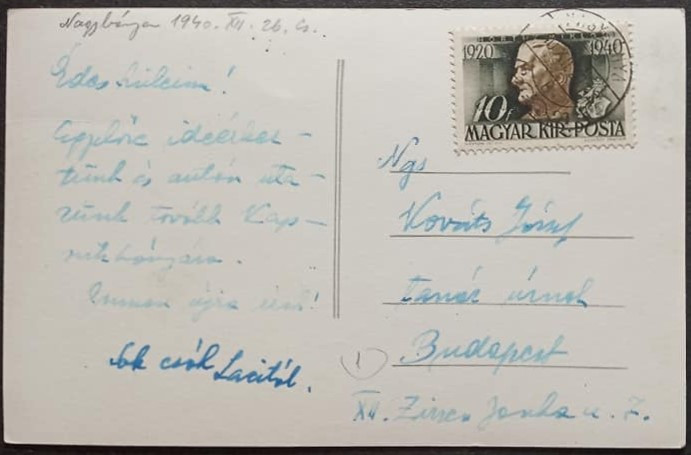 Nagybánya 1940. XII. 26. Cs.
Édes Szüleim!
Egyelőre ideérkez-
tünk és autón uta-
zunk tovább Kap-
nikbányára.
Innen újra írok!
Sok csók Lacitól.
HORTHY MIKLÓS
1920 1940
10f
MAGYAR KIR. POSTA
Ngs
Kováts József
tanár úrnak
Budapest
1
XII. Zirzen Janka u. 7.